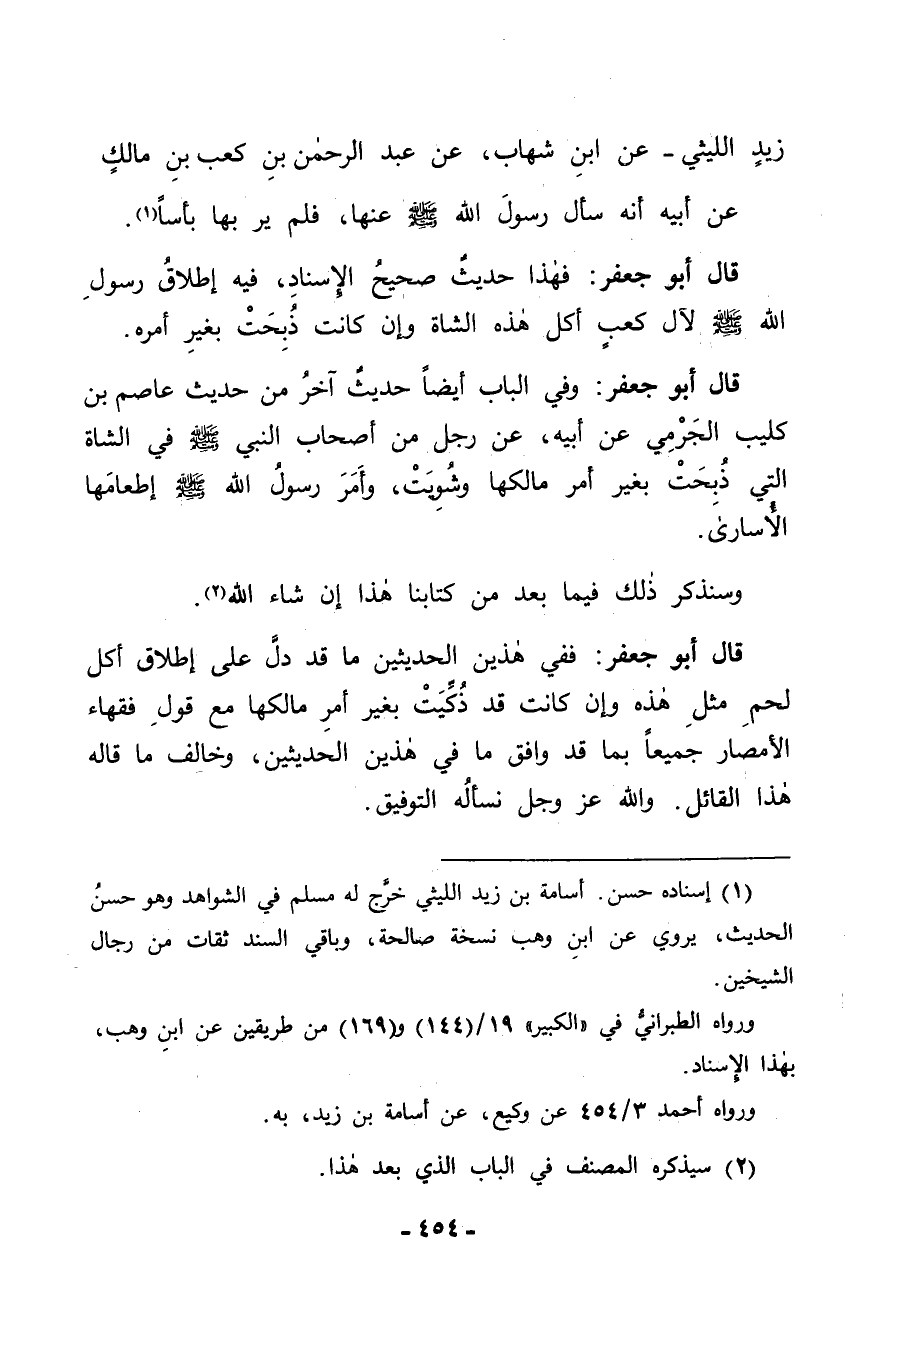 زيدٍ الليثي - عن ابنِ شهاب، عن عبد الرحمٰن بنِ كعب بنِ مالكٍ
عن أبيه أنه سأل رسولَ الله ﷺ عنها، فلم ير بها بأساً(١).
قال أبو جعفر: فهٰذا حديثٌ صحيحُ الإِسنادِ، فيه إطلاقُ رسولِ
الله ﷺ لآل كعبٍ أكل هٰذه الشاة وإن كانت ذُبِحَتْ بغيرِ أمره.
قال أبو جعفر: وفي الباب أيضاً حديثٌ آخرُ من حديث عاصم بن
كليب الجَرْمِي عن أبيه، عن رجل من أصحاب النبي ﷺ في الشاة
التي ذُبِحَتْ بغير أمر مالكها وشُوِيَتْ، وأَمَرَ رسولُ الله ﷺ إطعامَها
الأُسارىٰ.
وسنذكر ذٰلك فيما بعد من كتابنا هٰذا إن شاء الله(٢).
قال أبو جعفر: ففي هٰذين الحديثين ما قد دلَّ على إطلاق أكل
لحمِ مثلِ هٰذه وإن كانت قد ذُكِّيَتْ بغير أمرِ مالكها مع قولِ فقهاء
الأمصار جميعاً بما قد وافق ما في هٰذين الحديثين، وخالف ما قاله
هٰذا القائل. والله عز وجل نسألُه التوفيق.
(١) إسناده حسن. أسامة بن زيد الليثي خرَّج له مسلم في الشواهد وهو حسنُ
الحديث، يروي عن ابنِ وهب نسخة صالحة، وباقي السند ثقات من رجال
الشيخين.
ورواه الطبرانيُّ في «الكبير» ١٩/(١٤٤) و(١٦٩) من طريقين عن ابنِ وهب،
بهٰذا الإِسناد.
ورواه أحمد ٤٥٤/٣ عن وكيع، عن أسامة بن زيد، به.
(٢) سيذكره المصنف في الباب الذي بعد هٰذا.
- ٤٥٤ -